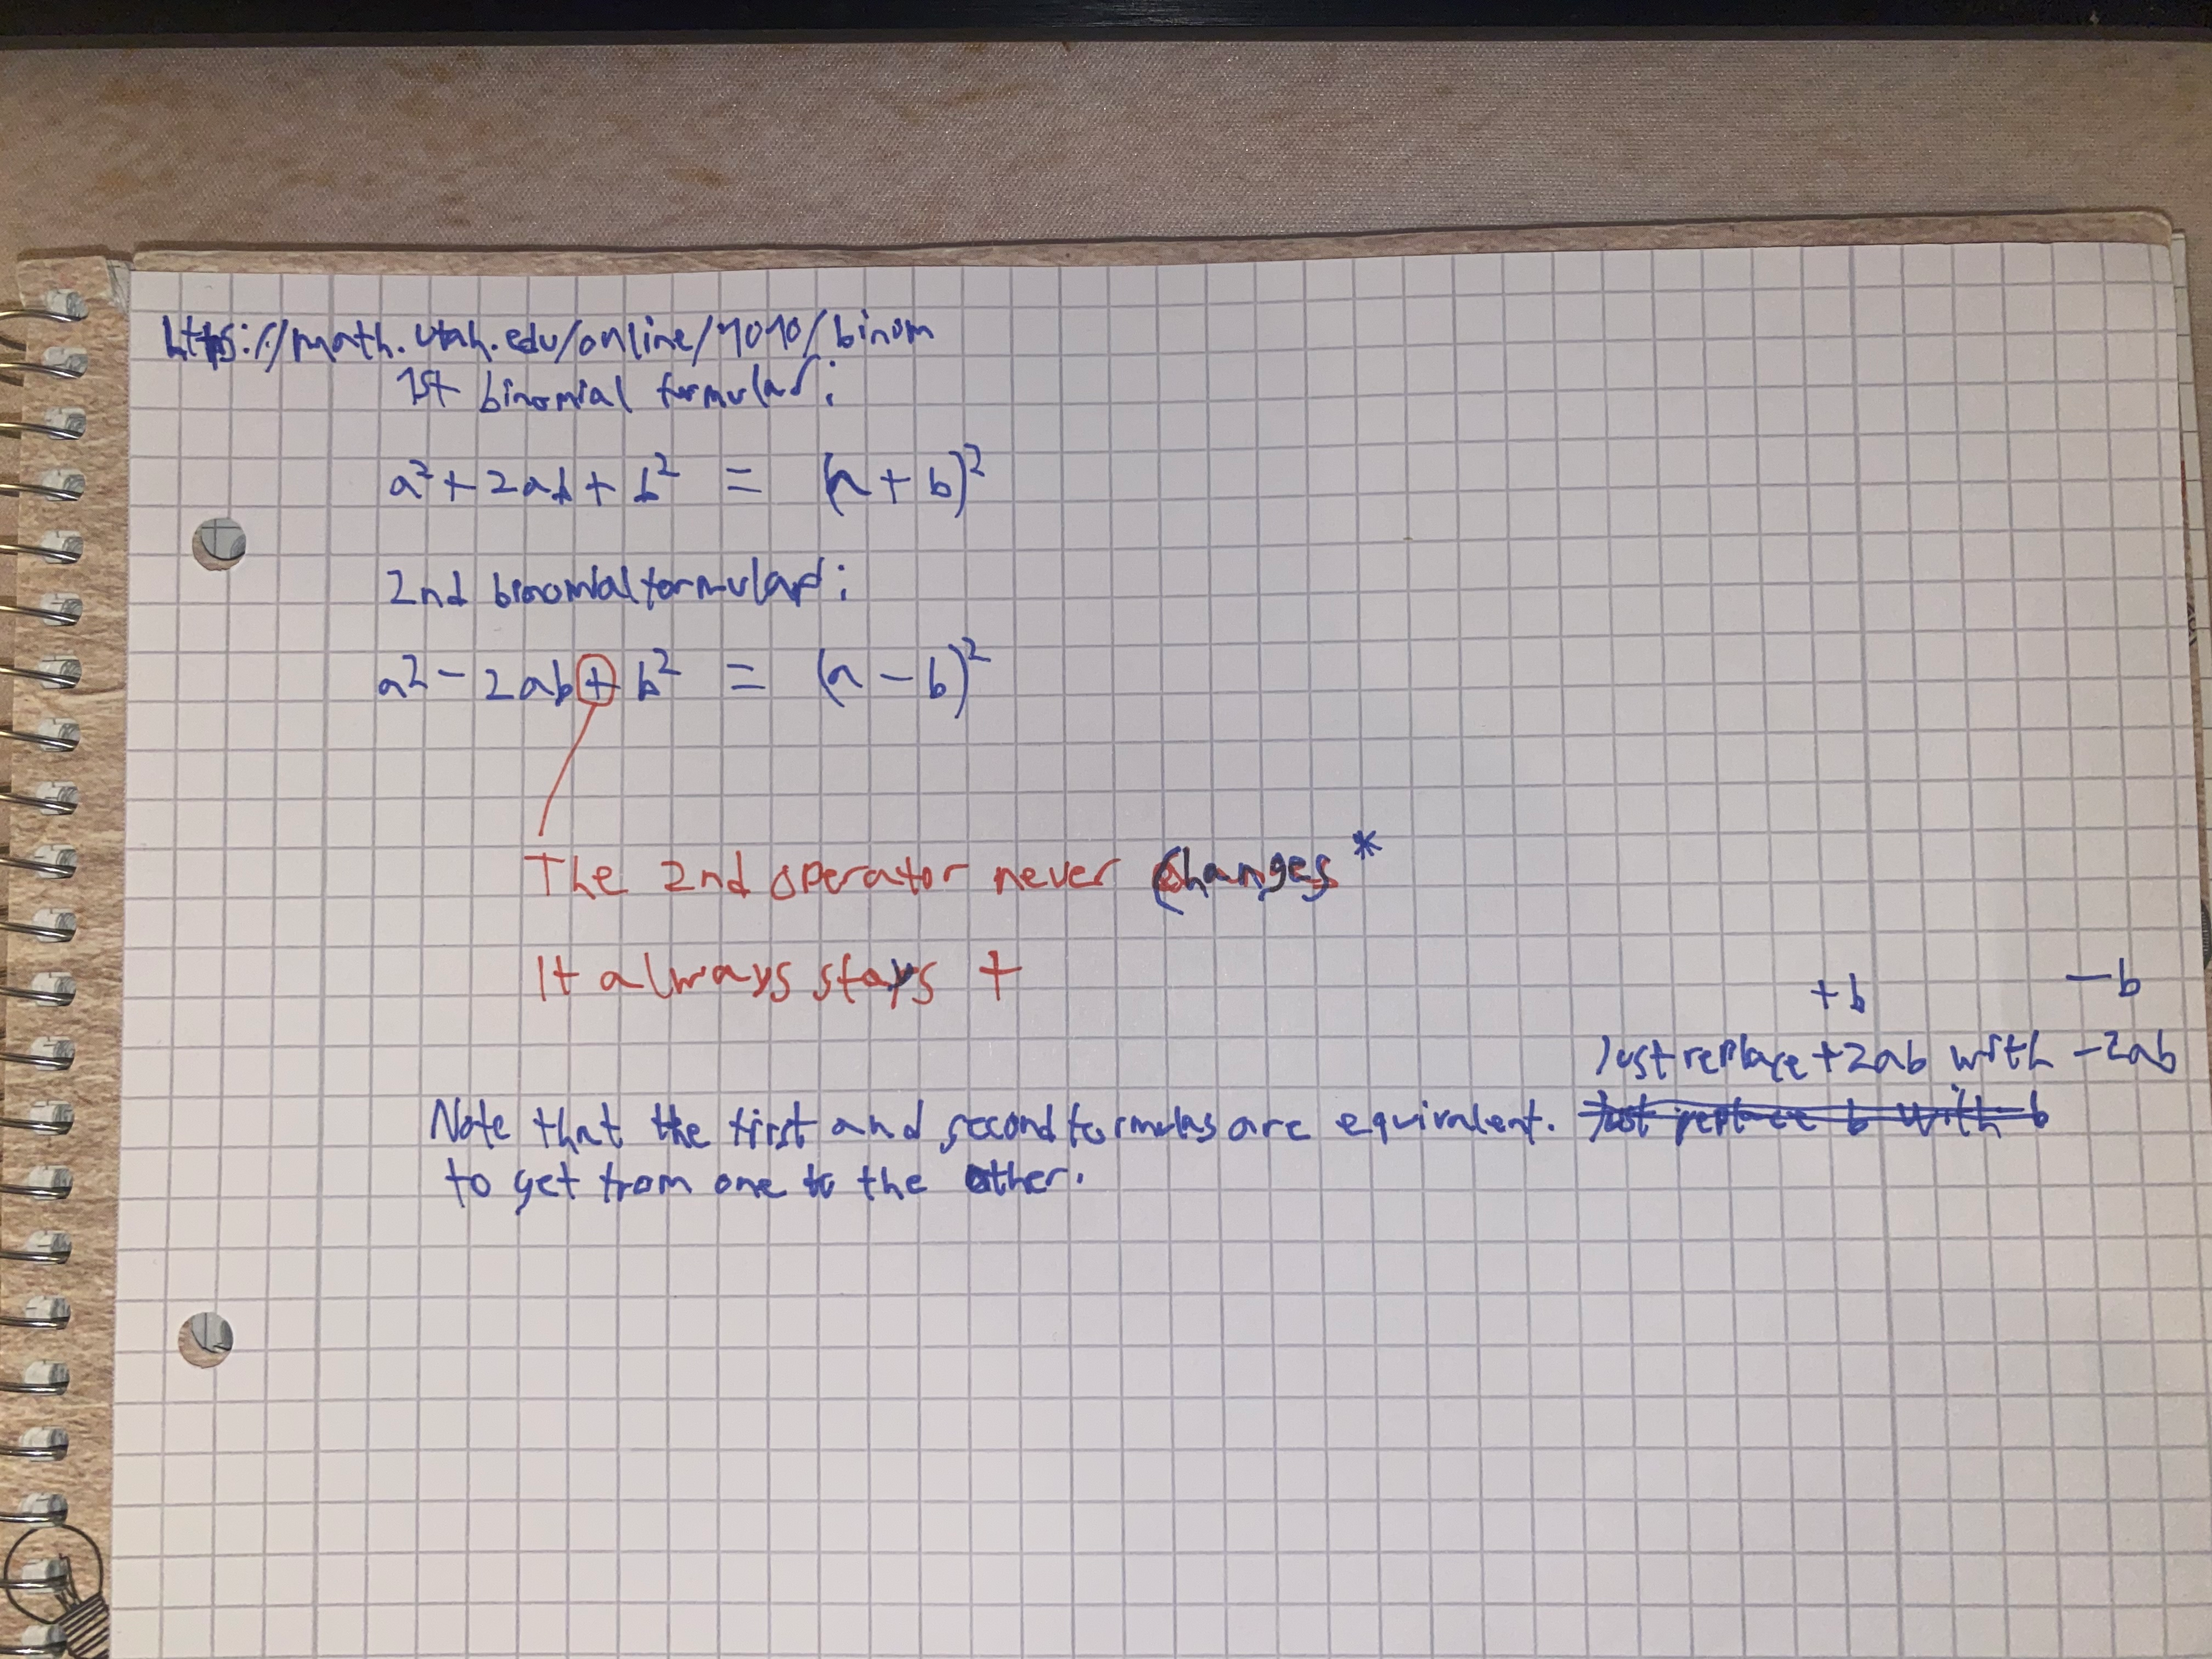 https://math.utah.edu/online/1010/binom
1st binomial formular:
a² + 2ab + b² = (a + b)²
2nd binomial formular:
a² - 2ab + b² = (a - b)²
The 2nd operator never changes *
It always stays +
+b -b
Just replace +2ab with -2ab
Note that the first and second formulas are equivalent. Just replace b with -b
to get from one to the other.